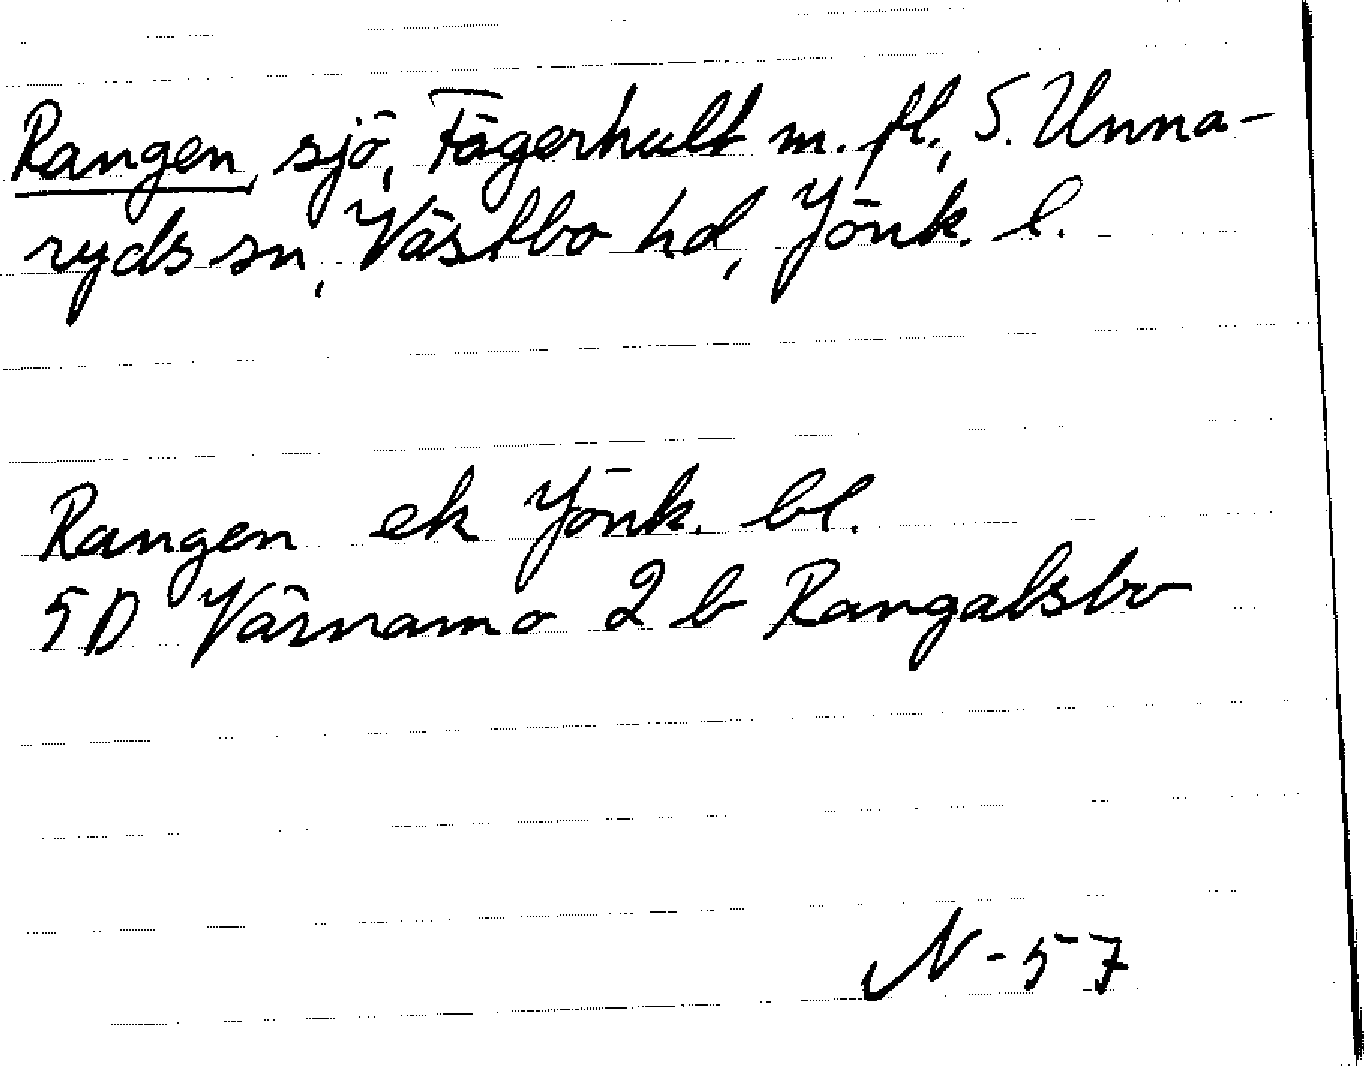 Rangen, sjö, Fägerhult m. fl., S. Unna-
ryds sn, Västbo hd, Jönk. l.
Rangen ek Jönk. bl.
5D Värnamo 2 b Rangalsbo
N-57